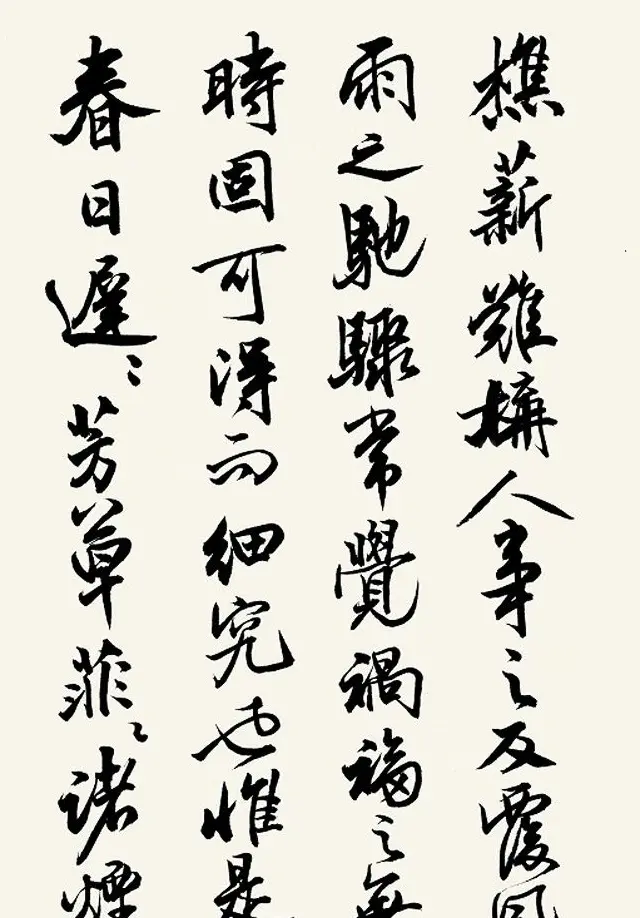 樵薪難構人事之反覆風
雨之馳驟常覺禍福之無
時固可得而細究也惟是
春日遲〻芳草菲〻諸煙